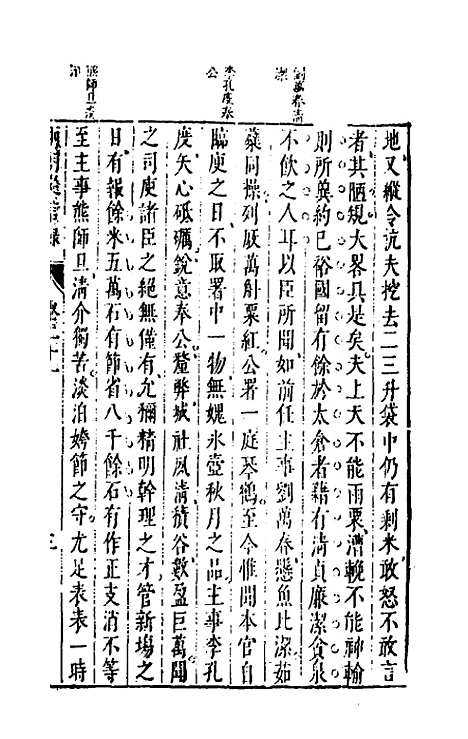 地又縱令抗夫挖去二三升袋中仍有剩米敢怒不敢言
者其陋規大畧具是矣夫上天不能雨粟漕輓不能神輸
則所兾約己裕國留有餘於太倉者藉有清貞廉潔貪泉
不飲之人耳以臣所聞如前任主事劉萬春懸魚比潔茹
蘖同操列厫萬斛粟紅公署一庭琴鶴至今惟聞本官自
臨庾之日不取署中一物無媿氷壺秋月之品主事李孔
度矢心砥礪銳意奉公釐弊城社風清積谷數盈巨萬聞
之司庾諸臣之絕無僅有允稱精明幹理之才管新場之
日有報餘米五萬石有節省八千餘石有作正支消不等
至主事熊師旦清介獨苦淡泊姱節之守尤足表表一時
劉萬春清
潔
李孔度奉
公
熊師旦清